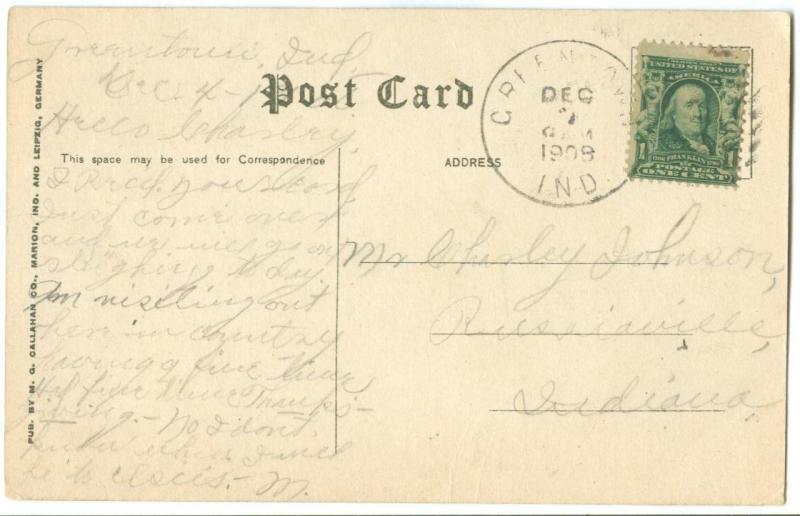 Greentown, Ind.
Dec. 4-
Hello Charley,
Post Card
This space may be used for Correspondence
I Recd. your Card
Just come over
and we will go on
sleighing today
Am visiting out
here in country
having a fine time
Had fine time Thanks-
giving.- No I don't
know when I will
be to - M.
PUB. BY M. G. CALLAHAN CO., MARION, IND. AND LEIPZIG, GERMANY
GREENTOWN
DEC
1908
IND.
UNITED STATES OF
AMERICA
1
FRANKLIN
POSTAGE
ONE CENT
ADDRESS
Mr Charley Johnson,
Russiaville,
Indiana